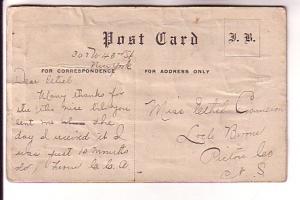 Post Card
I. B.
307 W 43 St
New York
FOR CORRESPONDENCE
FOR ADDRESS ONLY
Dear Ethel
Many thanks for
the nice you
sent me the
day I received it I
was just 10 months
old from C. C. A.
Miss Ethel Cameron
Loch Broom
Pictou Co
N. S